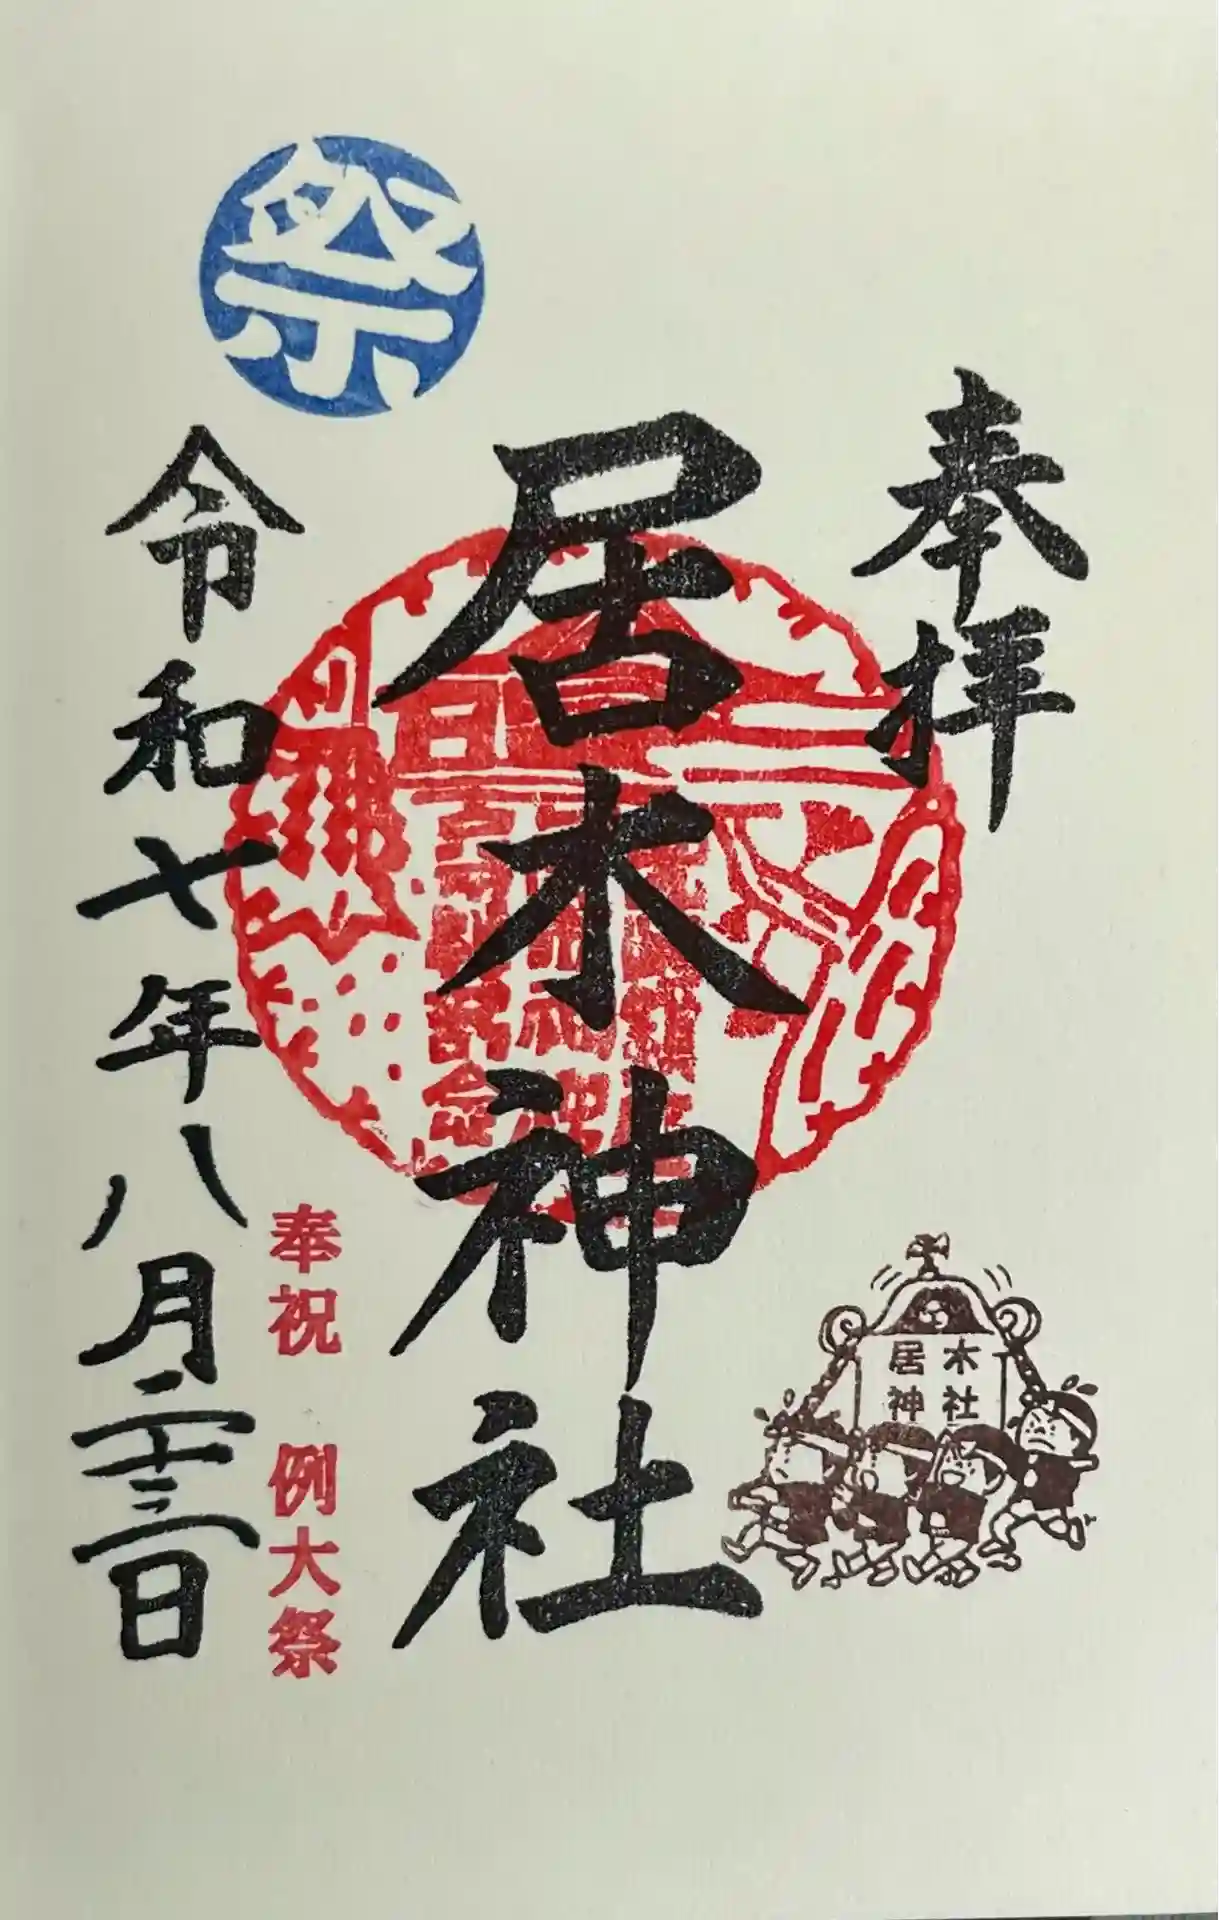 奉拝
居木
神社
居木神社
奉祝 例大祭
祭
令和七年八月二十三日